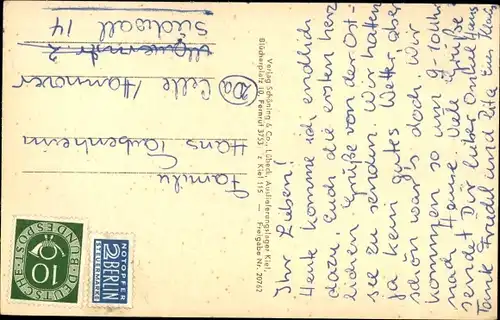 Ihr Lieben!
Heute komme ich endlich
dazu, Euch die ersten herz
lichen Grüße von der Ost-
see zu senden. Wir hatten
ja kein gutes Wetter, aber
schön war's doch. Wir
kommen so um 9. 10
nach Hause. Viele Grüße
sendet Dir lieber Onkel Hans
Tante Friedl und Rita Eure
Verlag Schöning & Co., Lübeck, Auslieferungslager Kiel,
Blücherplatz 10, Fernruf 3753 · z Kiel 115 — Freigabe Nr. 20762
Familie
Hans Taubenheim
(20a) Celle / Hannover
2
Südwall 14
DEUTSCHE BUNDESPOST
10
NOTOPFER
2 BERLIN
STEUERMARKE